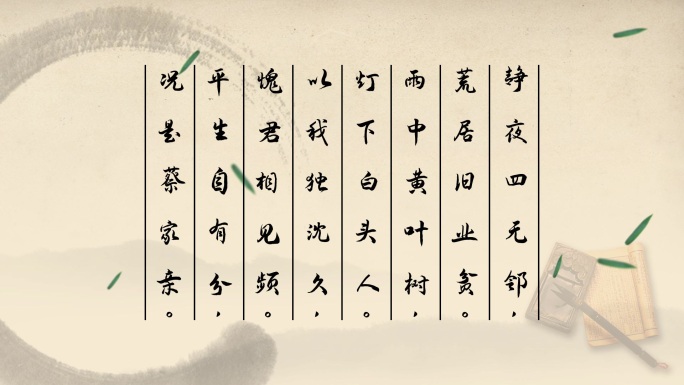 静夜四无邻,
荒居旧业贫。
雨中黄叶树,
灯下白头人。
以我独沈久,
愧君相见频。
平生自有分,
况是蔡家亲。